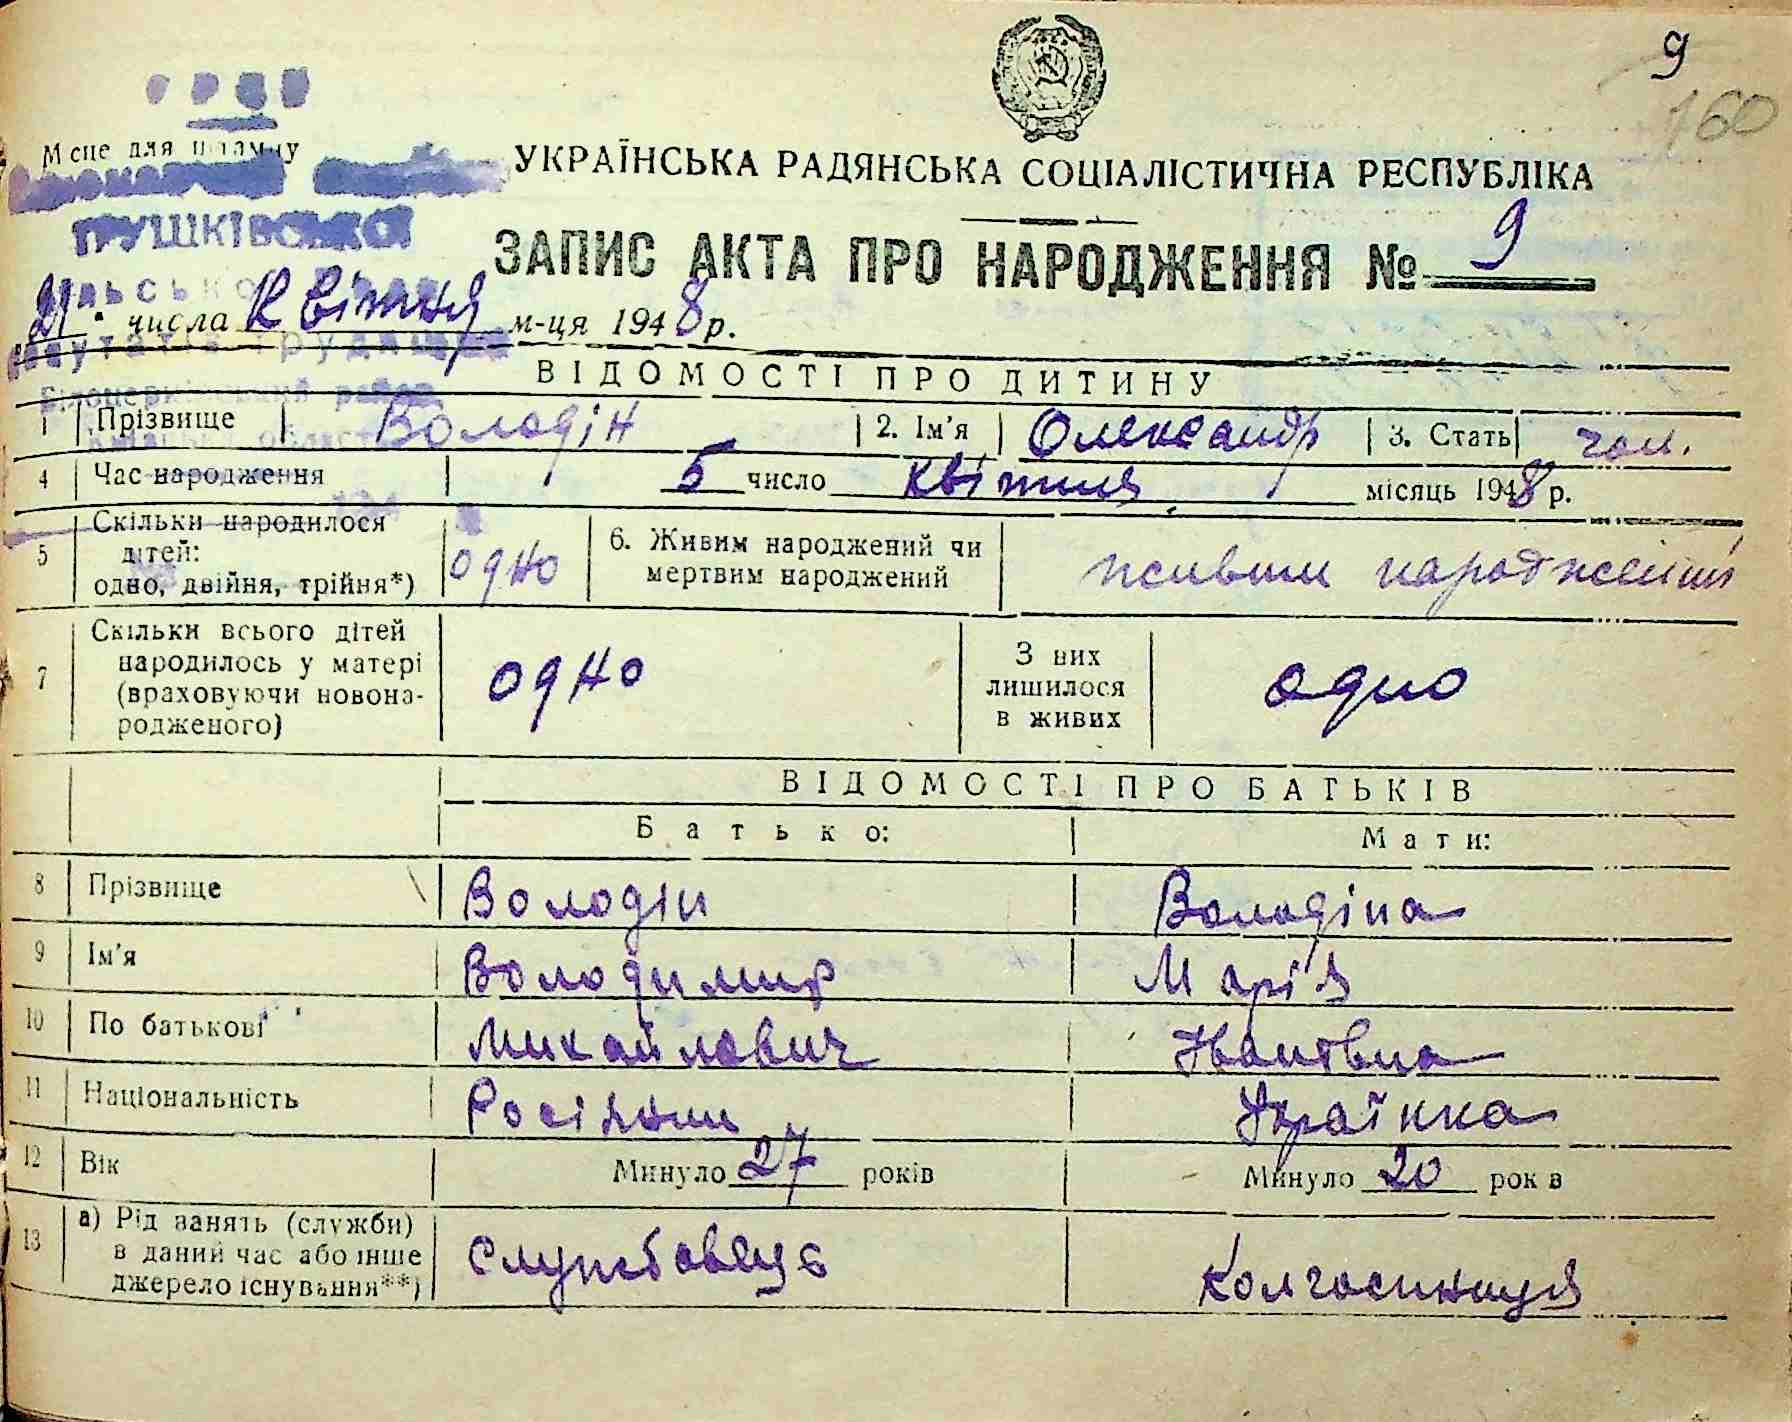 9
160
Місце для штампу
УКРАЇНСЬКА РАДЯНСЬКА СОЦІАЛІСТИЧНА РЕСПУБЛІКА
ПУШКІВСЬКОЇ
ЗАПИС АКТА ПРО НАРОДЖЕННЯ № 9
21 числа Квітня м-ця 1948 р.
ВІДОМОСТІ ПРО ДИТИНУ
1 Прізвище Володін 2. Ім'я Олександр 3. Стать чол.
4 Час народження 5 число квітня місяць 1948 р.
5 Скільки народилося
дітей:
одно, двійня, трійня*) одно
6. Живим народжений чи
мертвим народжений живим народжений
7 Скільки всього дітей
народилось у матері
(враховуючи новона-
родженого) одно
З них
лишилося
в живих одно
ВІДОМОСТІ ПРО БАТЬКІВ
Батько: Мати:
8 Прізвище Володін Володіна
9 Ім'я Володимир Марія
10 По батькові Михайлович Іванівна
11 Національність Росіянин Українка
12 Вік Минуло 27 років Минуло 20 рок в
13 а) Рід занять (служби)
в даний час або інше
джерело існування**) Службовець Колгоспниця